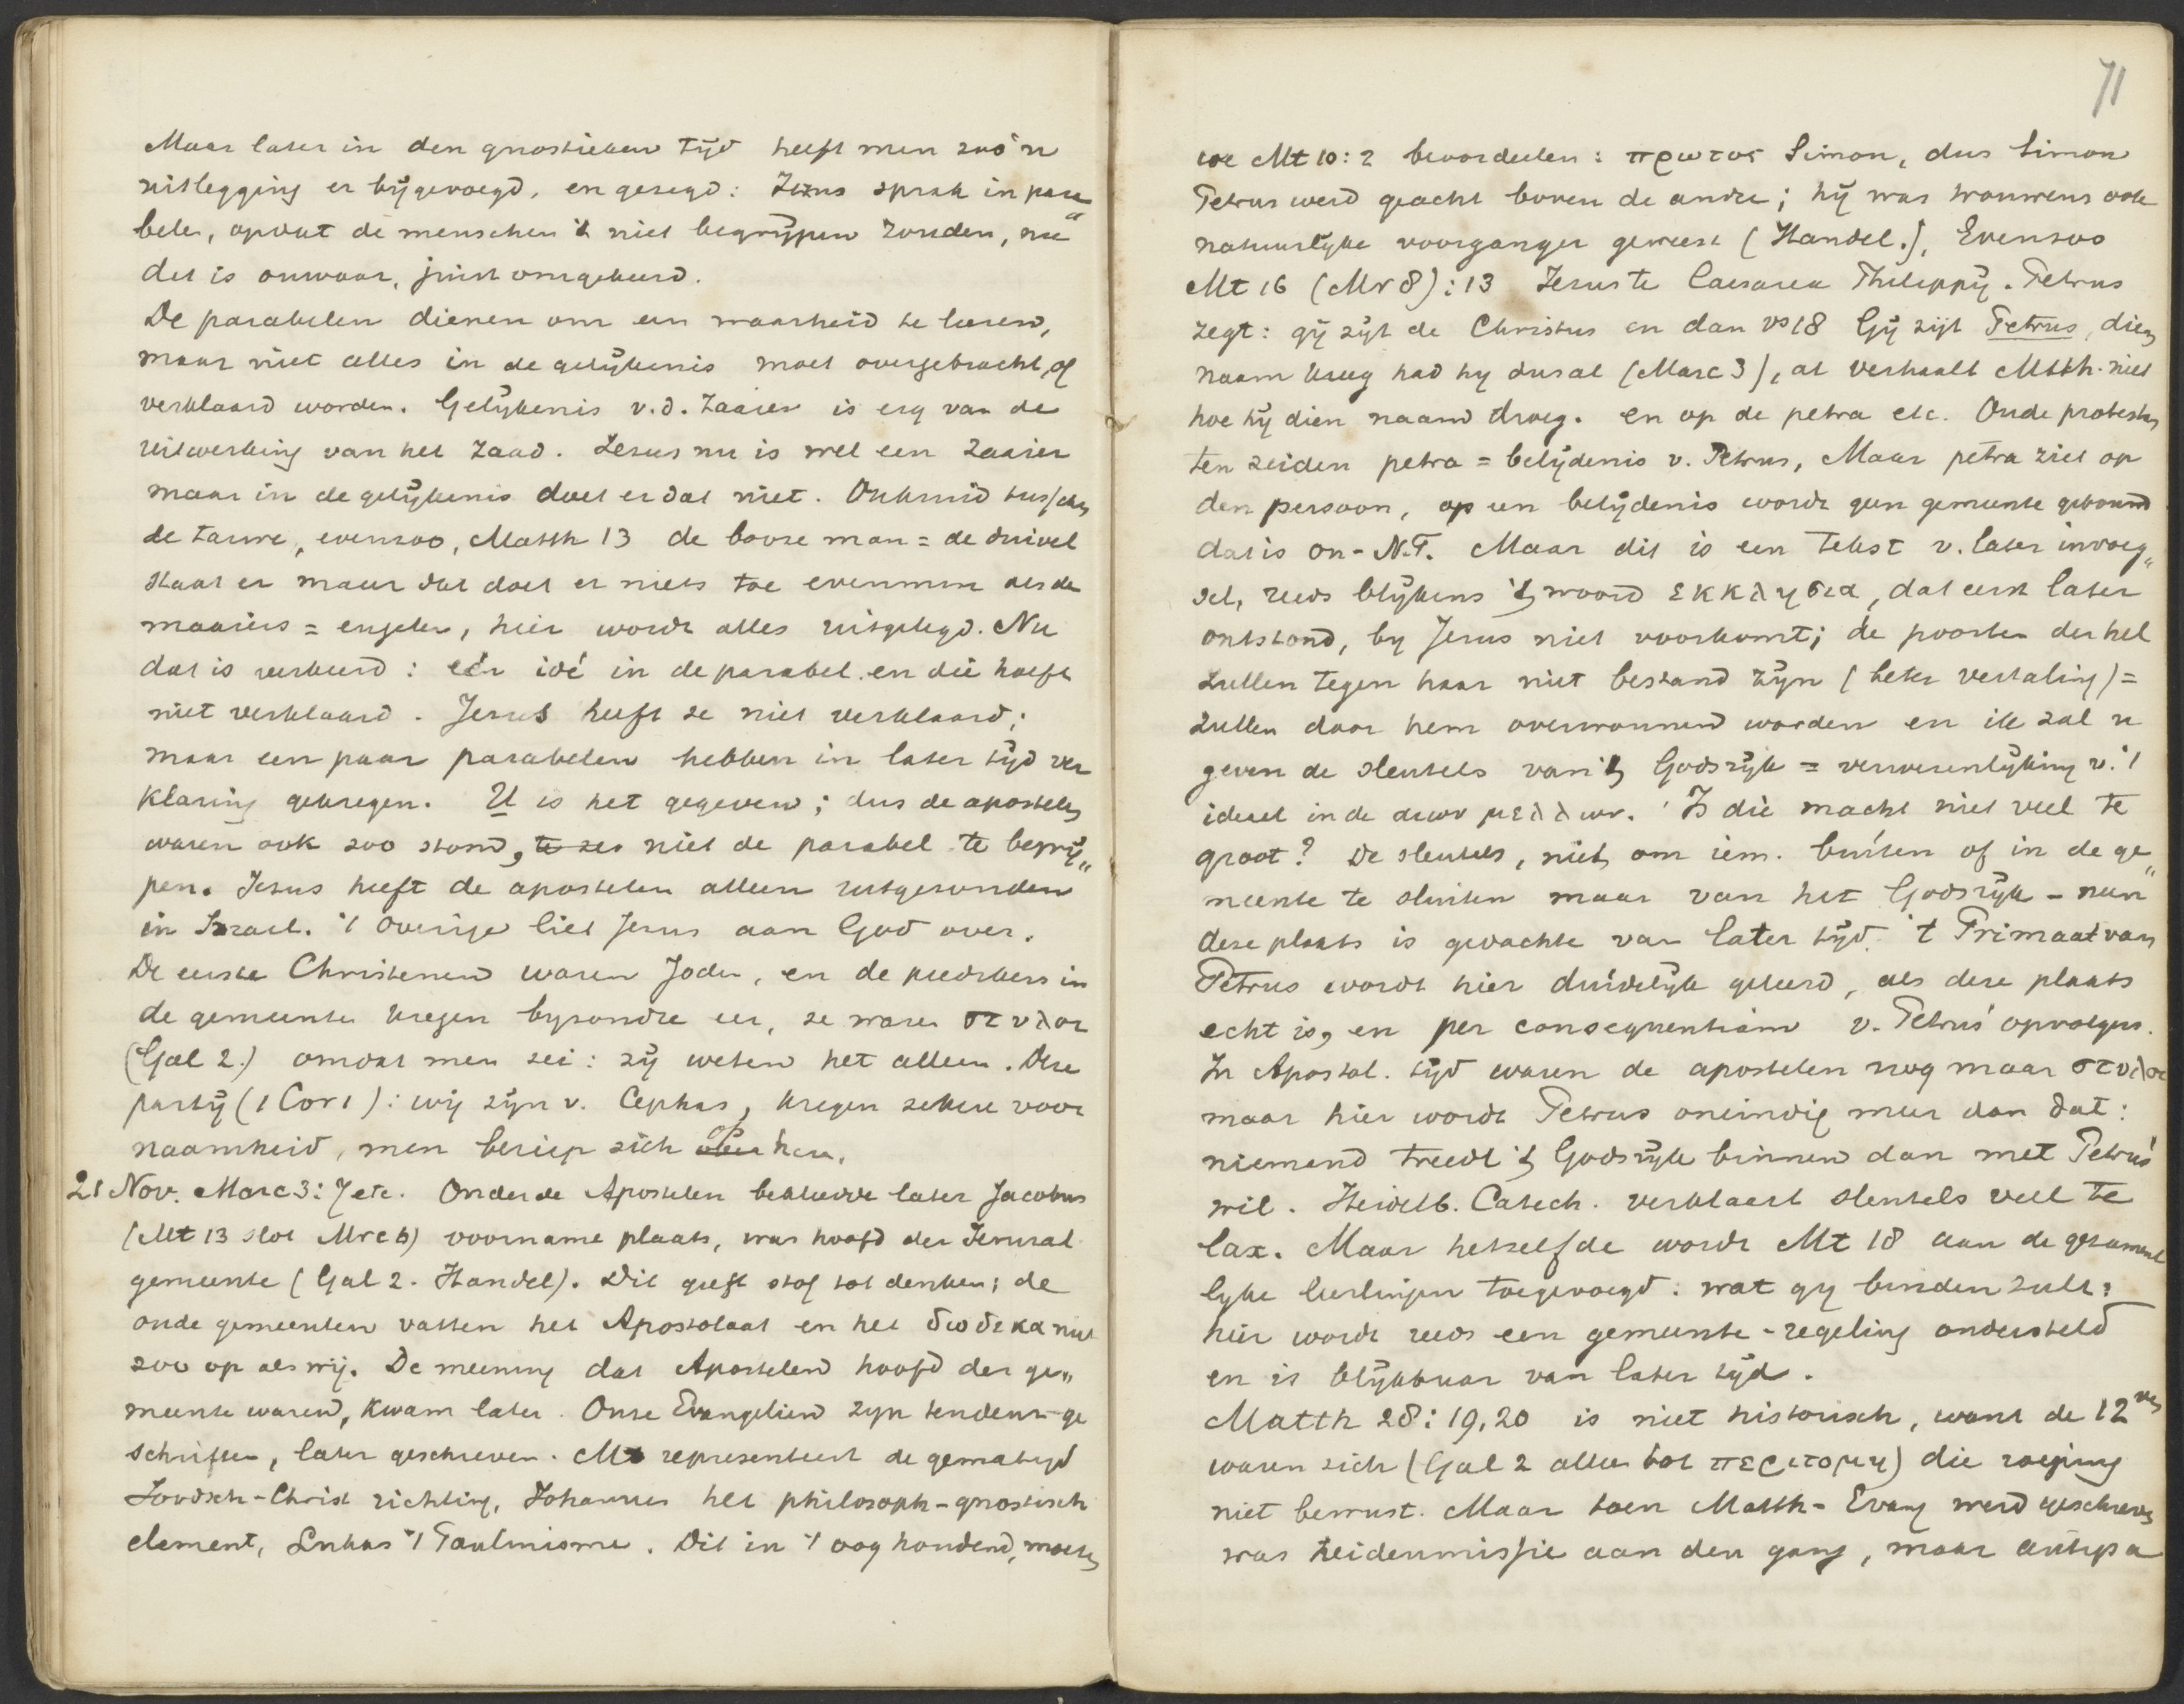 Maar later in den gnostieken tijd heeft men zoo'n
uitlegging er bijgevoegd, en gezegd: Jezus sprak in para
belen, opdat de menschen 't niet begrijpen zouden, nu
dit is onwaar, juist omgekeerd.
De parabelen dienen om een waarheid te leeren,
maar niet alles in de gelijkenis moet overgebracht, of
verklaard worden. Gelijkenis v.d. Zaaier is erg van de
uitwerking van het zaad. Jesus nu is wel een zaaier
maar in de gelijkenis doet er dat niet. Onkruid tusschen
de tarwe, evenzoo, Matth 13 de booze man = de duivel
staat er maar dat doet er niets toe evenmin als de
maaiers = engelen, hier wordt alles uitgelegd. Nu
dat is verkeerd: één idé in de parabel en die hoeft
niet verklaard. Jesus heeft ze niet verklaard;
maar een paar parabelen hebben in later tijd ver
klaring gekregen. U is het gegeven; dus de apostelen
waren ook zoo stom, niet de parabel te begrij„
pen. Jesus heeft de apostelen alleen uitgezonden
in Israel. 't Overige liet Jesus aan God over.
De eerste Christenen waren Joden, en de predikers in
de gemeente kregen byzondre eer, ze waren στυλοι
(Gal 2.) omdat men zei: zij weten het alleen. Deze
partij (1 Cor 1): wij zijn v. Cephas, kregen zekere voor
naamheid, men beriep zich op hen.
21 Nov. Marc 3:7 etc. Onder de Apostelen bekleedde later Jacobus
(Mt 13 slot Mrc 6) voorname plaats, was hoofd der Jerusal
gemeente (Gal 2. Handel). Dit geeft stof tot denken; de
oude gemeenten vatten het Apostolaat en het δωδεκα niet
zoo op als wij. De meening dat Apostelen hoofd der ge„
meente waren, kwam later. Onze Evangelien zyn tendenz-ge
schriften, later geschreven. Mt representeert de gematigd
Joodsch-Christ richting, Johannes het philosoph-gnostisch
element, Lukas 't Paulinisme. Dit in 't oog houdend, moeten
71
we Mt 10:2 beoordeelen: πρωτος Simon, dus Simon
Petrus werd geacht boven de andre; hij was trouwens ook
natuurlijke voorganger geweest (Handel.). Evenzoo
Mt 16 (Mr 8):13 Jesus te Caesarea Philippij. Petrus
zegt: gij zijt de Christus en dan vs 18 Gij zijt Petrus, dien
naam kreeg had hy dus al (Marc 3), al verhaalt Matth. niet
hoe hij dien naam droeg. en op de petra etc. Oude protestan
ten zeiden petra = belijdenis v. Petrus, Maar petra ziet op
den persoon, op een belijdenis wordt geen gemeente gebouwd
dat is on-N.T. Maar dit is een tekst v. later invoeg„
sel, reeds blijkens 't woord εκκλησια, dat eerst later
ontstond, by Jesus niet voorkomt; de poorten der hel
zullen tegen haar niet bestand zijn (beter vertaling) =
zullen door hem overwonnen worden en ik zal u
geven de sleutels van 't Godsrijk = verwesenlijking v. 't
ideaal in de αιων μελλων. Is die macht niet veel te
groot? De sleutels, niet om iem. buiten of in de ge„
meente te sluiten maar van het Godsrijk – neen
deze plaats is gedachte van later tijd. 't Primaat van
Petrus wordt hier duidelijk geleerd, als deze plaats
echt is, en per consequentiam v. Petrus' opvolgers.
In Apostol. tijd waren de apostelen nog maar στυλοι
maar hier wordt Petrus oneindig meer dan dat:
niemand treedt 't Godsrijk binnen dan met Petrus'
wil. Heidelb. Catech. verklaart sleutels veel te
lax. Maar hetzelfde wordt Mt 18 aan de gezament
lyke leerlingen toegevoegd: wat gy binden zult;
hier wordt reeds een gemeente-regeling ondersteld
en is blijkbaar van later tijd.
Matth 28:19,20 is niet historisch, want de 12ven
waren zich (Gal 2 allen tot περιτομη) die roeping
niet bewust. Maar toen Matth-Evang werd geschreven
was heidenmissie aan den gang, maar antipa